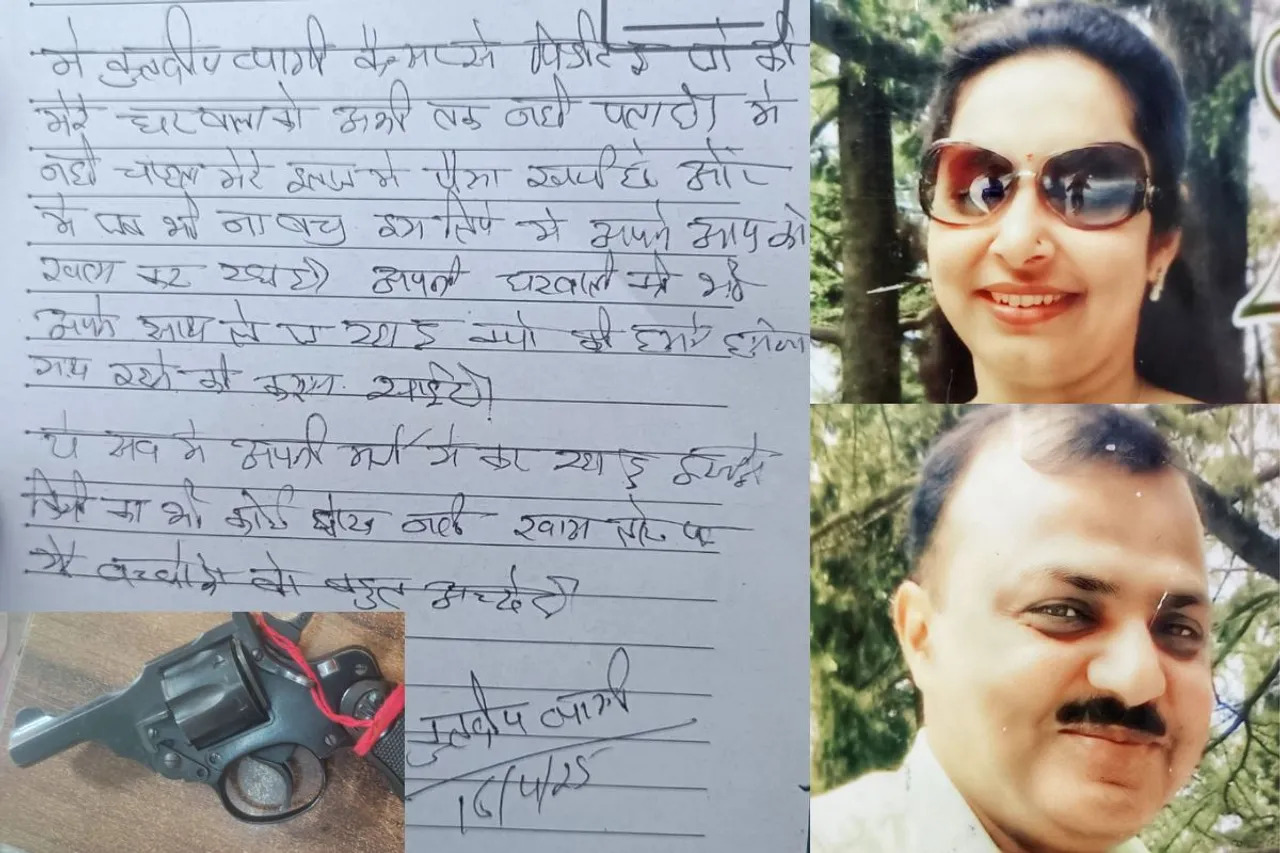 मे कुलदीप त्यागी कैन्सर से पिडीत हु जो की
मेरे घरवालो को अभी तक नही पता है। मे
नही चाहता मेरे इलाज मे पैसा खर्च हो और
मे जब भी ना बचु इस लिए मे अपने आप को
खत्म कर रहा हुँ। अपनी घरवाली को भी
अपने साथ ले जा रहा हु क्यो की हमने हमेशा
साथ रहने की कसम खाई है।
ये सब मे अपनी मर्जी से कर रहा हु इसमे
किसी का भी कोई दोष नही खास तौर पर
मेरे बच्चो का वो बहुत अच्छे है।
कुलदीप त्यागी
16/4/25